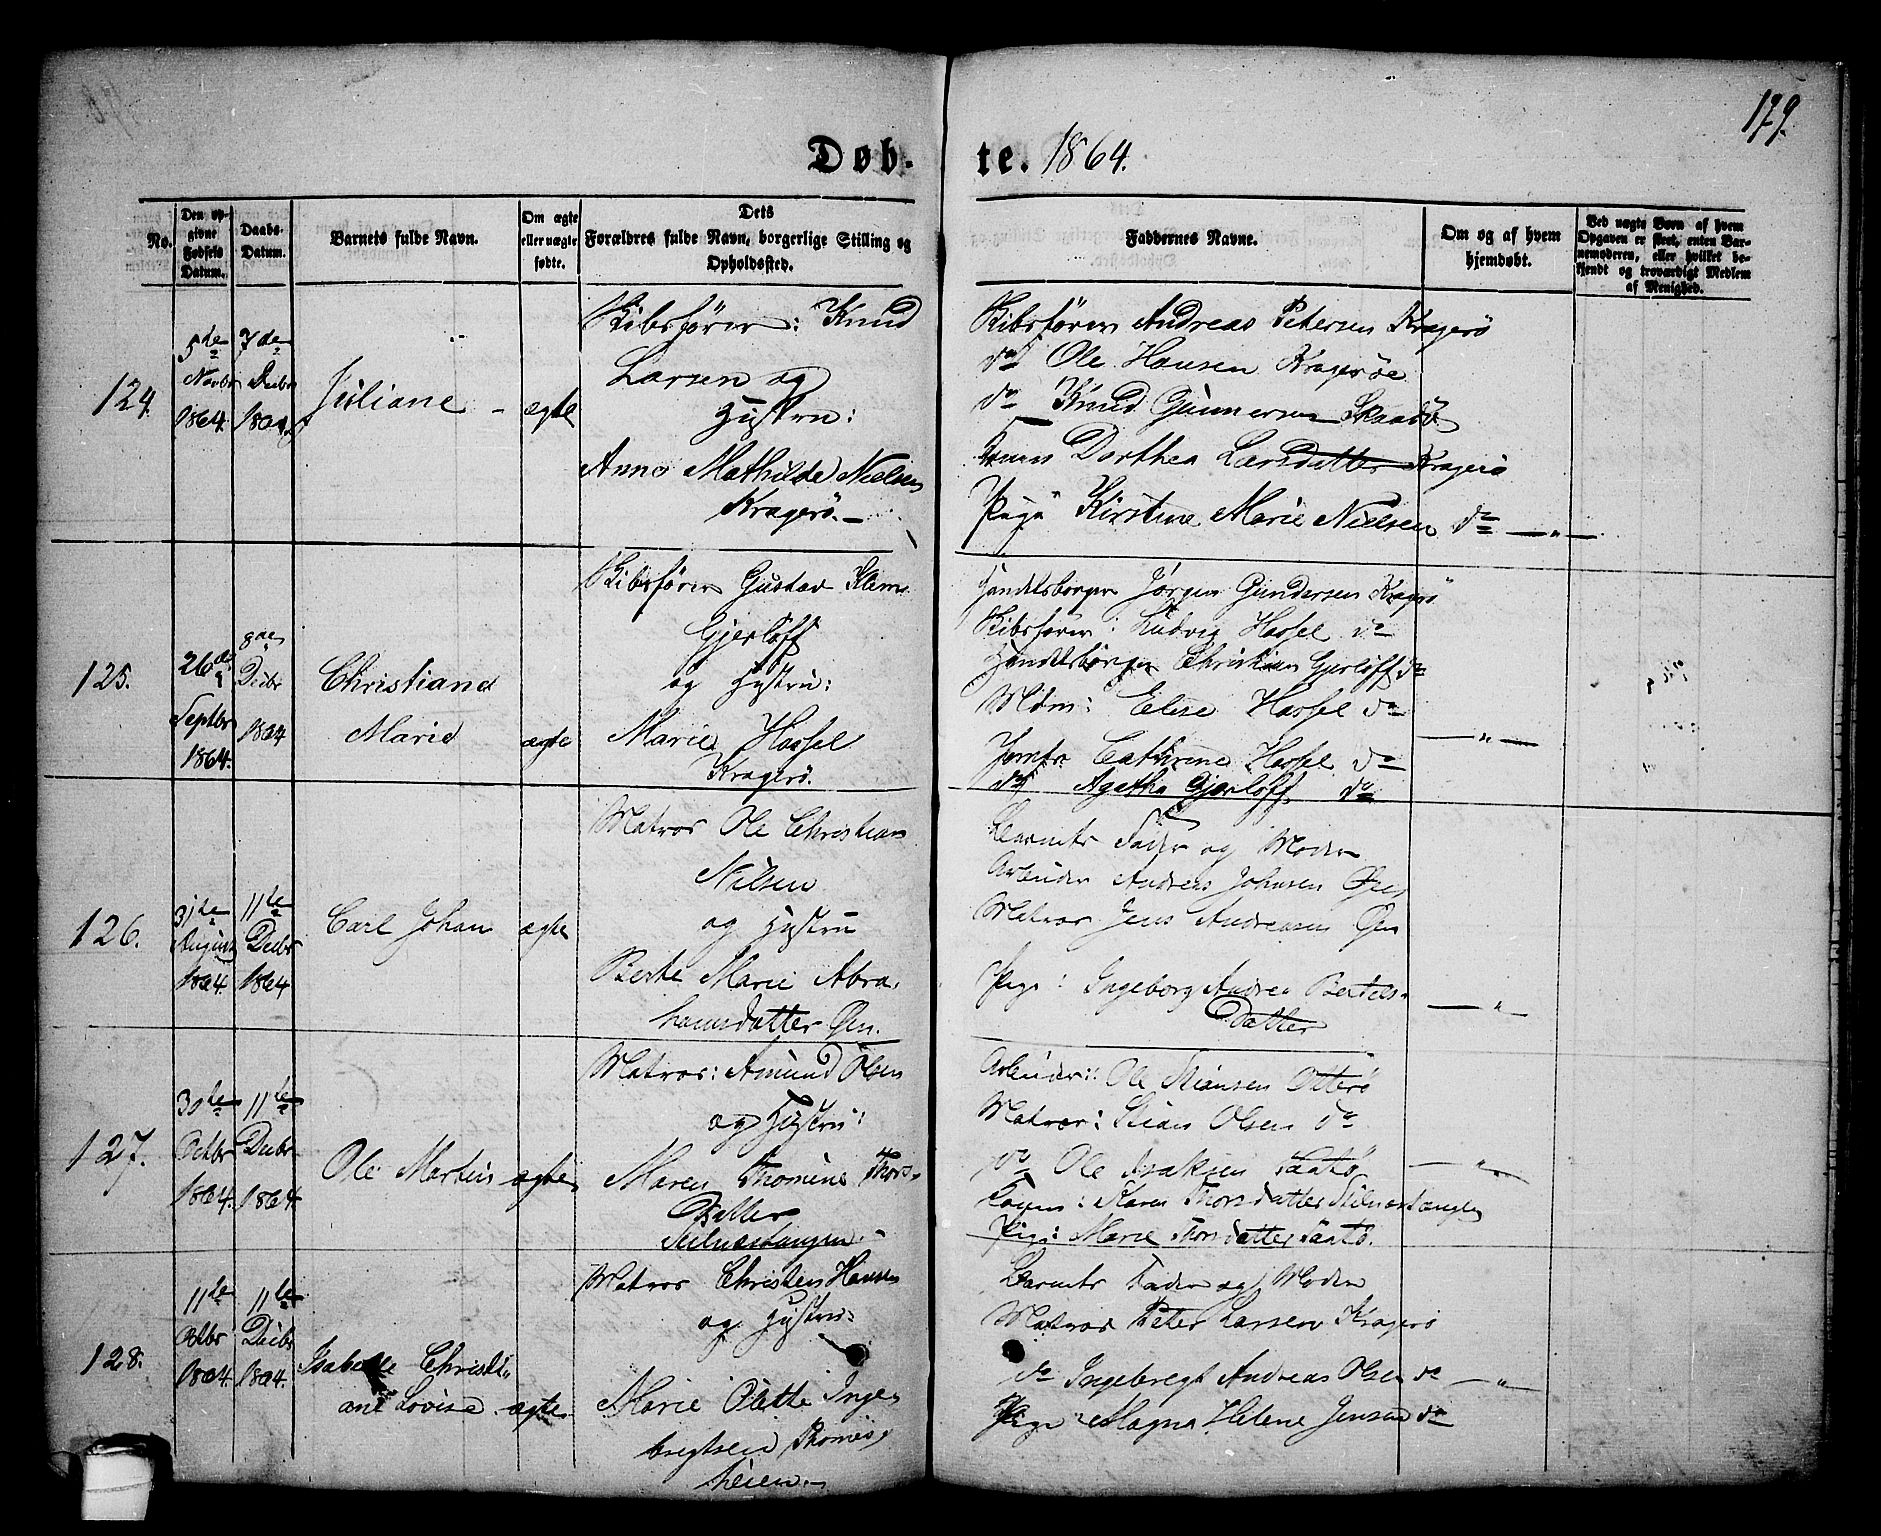 179.
Døb- te. 1864.
No.
Den op-
givne
Fødsels
Datum.
Daabs-
Datum.
Barnets fulde Navn.
Om ægte
eller uægte
fødte.
Dets
Forældres fulde Navn, borgerlige Stilling og
Opholdssted.
Faddernes Navne.
Om og af hvem
hjemdøbt.
Ved uægte Børn af hvem
Opgaven er skeet, enten Bar-
nemoderen, eller hvilket be-
kjendt og troværdigt Medlem
af Menighed.
124.
5te
Novbr
1864.
7de
Decbr
1864.
Juliane
ægte
Skibsfører: Knud
Larsen og
Hustru:
Anna Mathilde Nielsen
Kragerø.
Skibsfører Andreas Petersen Kragerø
do Ole Hansen Kragerøe
do Knud Gunnersen Skaatø
Dorthea Larsdatter Kragerø
Pige Kirstine Marie Nielsen do — " —
125.
26de
Septbr
1864.
8de
Decbr
1864
Christiane
Marie
ægte
Skibsfører Gustav
Gjerløff
og Hustru:
Marie Hassel
Kragerø.
Handelsborger Jørgen Gundersen Kragerø
Skibsfører: Ludvig Hassel do
Handelsborger Christian Gjerløff do
Mdm: Elise Hassel do
Jomfr Cathrine Hassel do — " —
do Agathe Gjerløff do
126.
31te
August
1864.
11te
Decbr
1864
Carl Johan
ægte
Matros Ole Christian
Nilsen
og Hustru
Berte Marie Abra-
hamsdatter Øen.
Barnets Fader og Moder
Arbeider Andreas Johnsen Øen
Matros Jens Andreasen Øen
Pige: Ingeborg Andrea Bertels-
datter — " —
127.
30te
Octbr
1864.
11te
Decbr
1864.
Ole Martin
ægte
Matros: Amund Olsen
og Hustru:
Maren Thomine Thors-
Datter
Stilnestangen.
Arbeider: Ole Stiansen Otterø
Matros: Stian Olsen do
do Ole Isaksen Taatø — " —
Konen: Karen Thorsdatter Stilnestangen
Pige: Marie Thorsdatter Taatø.
128.
11te
Octbr
1864.
11te
Decbr
1864.
Isabelle Christi-
ane Lovise
ægte
Matros Christen Hansen
og Hustru:
Marie Olette Inge-
bregtsen Thomes-
heien.
Barnets Fader og Moder
Matros Peter Larsen Kragerø
do Ingebregt Andreas Olsen do — " —
Pige: Magna Helene Jensen do